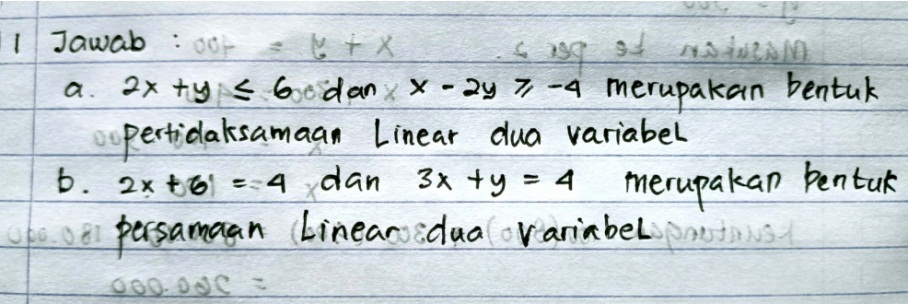 1 Jawab :
a. 2x + y ≤ 6 dan x - 2y ≥ -4 merupakan bentuk
pertidaksamaan Linear dua variabel
b. 2x + 6 = -4 dan 3x + y = 4 merupakan bentuk
persamaan Linear dua variabel